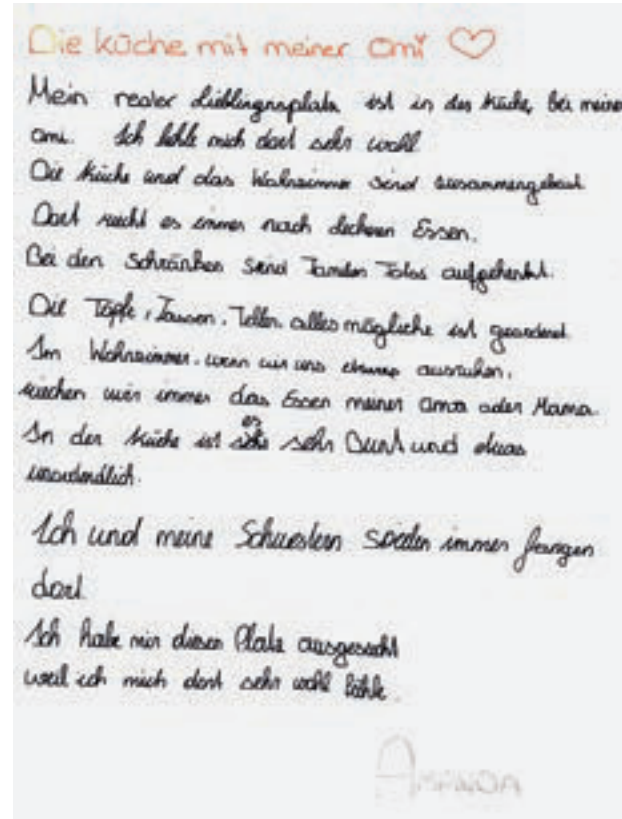 Die küche mit meiner Omi ♡
Mein realer Lieblingsplatz ist in der Küche, bei meiner
Omi. Ich fühle mich dort sehr wohl
Die Küche und das Wohnzimmer sind zusammengebaut.
Dort riecht es immer nach leckeren Essen.
Bei den Schränken sind Familien Fotos aufgehenkt.
Die Töpfe, Tassen, Teller alles mögliche ist geordnet.
Im Wohnzimmer, wenn wir uns etwas ausruhen,
riechen wir immer das Essen meiner Oma oder Mama.
In der Küche ist es sehr Bunt und etwas
unordendlich.
Ich und meine Schwestern spielen immer fangen
dort.
Ich habe mir diesen Platz ausgesucht
weil ich mich dort sehr wohl fühle.
Amanda